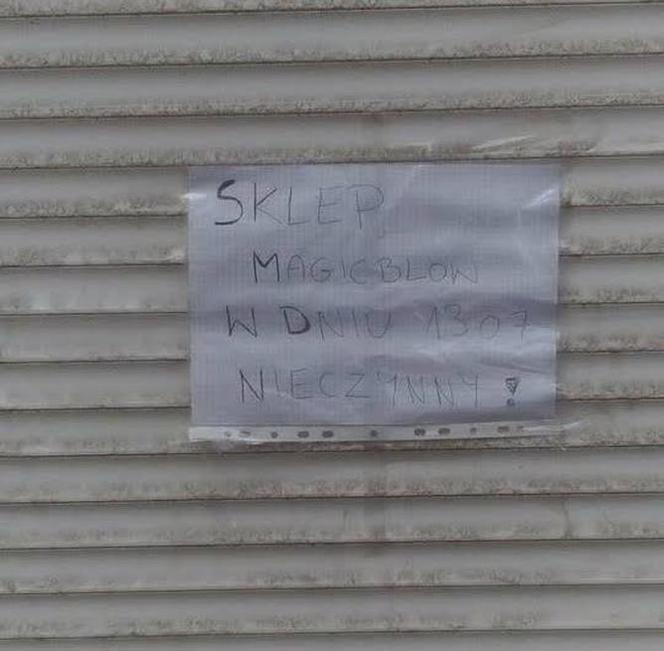 SKLEP
MAGICBLOW
W DNIU 1307
NIECZYNNY!